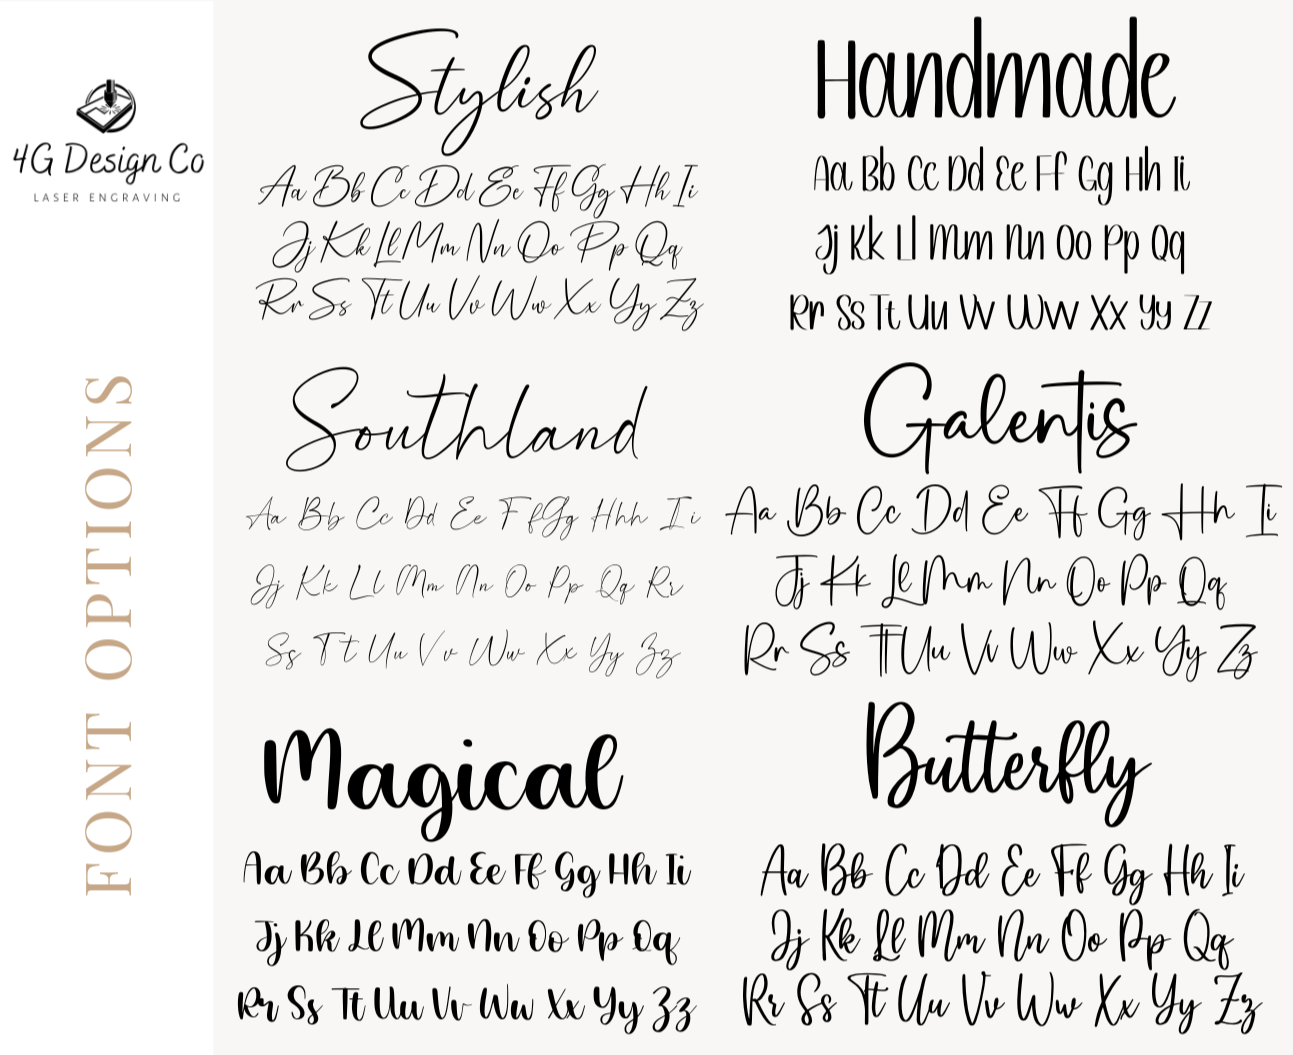 4G Design Co
LASER ENGRAVING
FONT OPTIONS
Stylish
Aa Bb Cc Dd Ee Ff Gg Hh Ii
Jj Kk Ll Mm Nn Oo Pp Qq
Rr Ss Tt Uu Vv Ww Xx Yy Zz
Handmade
Aa Bb Cc Dd Ee Ff Gg Hh Ii
Jj Kk Ll Mm Nn Oo Pp Qq
Rr Ss Tt Uu Vv Ww Xx Yy Zz
Southland
Aa Bb Cc Dd Ee Ff Gg Hhh Ii
Jj Kk Ll Mm Nn Oo Pp Qq Rr
Ss Tt Uu Vv Ww Xx Yy Zz
Galentis
Aa Bb Cc Dd Ee Ff Gg Hh Ii
Jj Kk Ll Mm Nn Oo Pp Qq
Rr Ss Tt Uu Vv Ww Xx Yy Zz
Magical
Aa Bb Cc Dd Ee Ff Gg Hh Ii
Jj Kk Ll Mm Nn Oo Pp Qq
Rr Ss Tt Uu Vv Ww Xx Yy Zz
Butterfly
Aa Bb Cc Dd Ee Ff Gg Hh Ii
Jj Kk Ll Mm Nn Oo Pp Qq
Rr Ss Tt Uu Vv Ww Xx Yy Zz